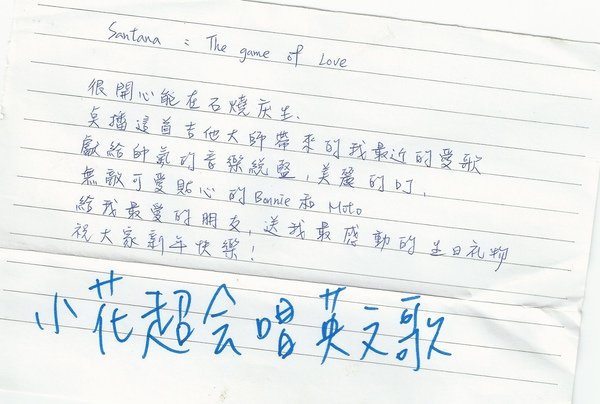 Santana : The game of Love
很開心能在石燒慶生、
點播這首吉他大師帶來的我最近的愛歌
獻給帥氣的音樂統監,美麗的叮,
無敵可愛貼心的 Bonnie 和 Moto
給我最愛的朋友,送我最感動的生日礼物
祝大家新年快樂!
小花超会唱英文歌